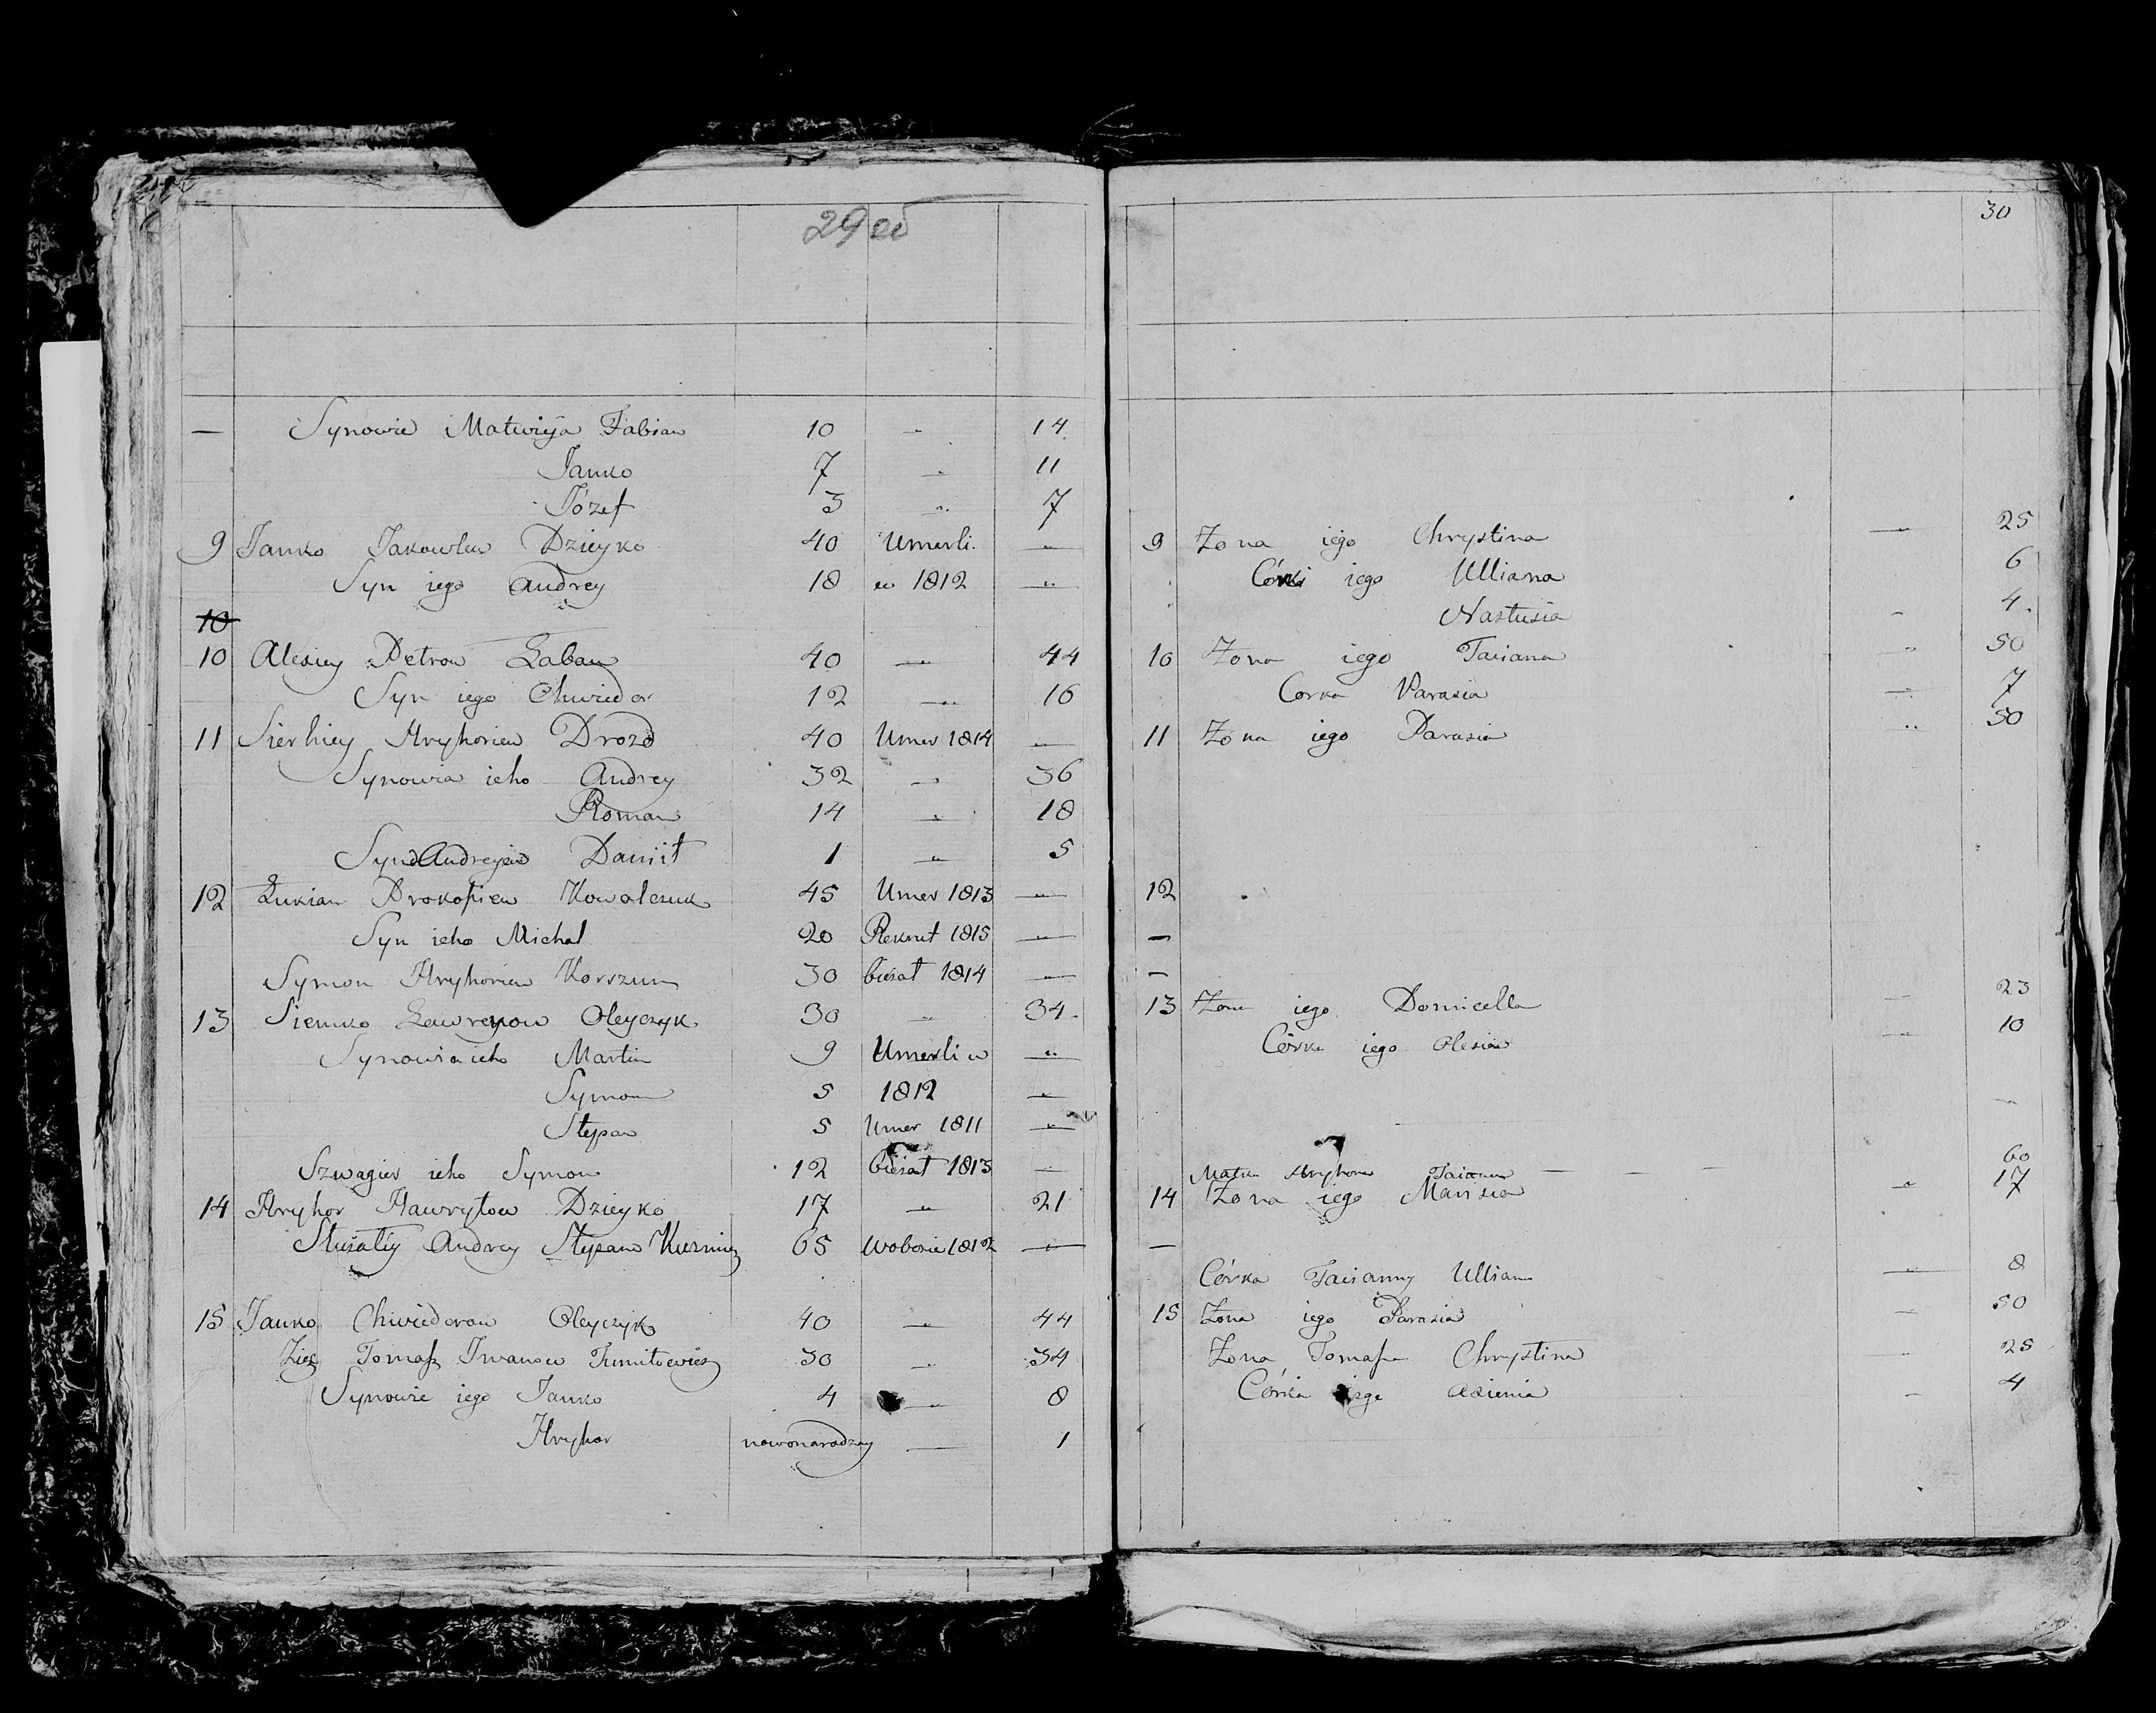 29 об
— Synowie Matwieja Fabian 10 — 14
Janko 7 — 11
Józef 3 — 7
9 Janko Jakowlew Dzieyko 40 Umerli —
Syn iego Andrey 18 w 1812 —
10
10 Alexiey Petrow Łaban 40 — 44
Syn iego Chwiedor 12 — 16
11 Sierhiey Hryhoriew Drozd 40 Umer 1814 —
Synowia ieho Andrey 32 — 36
Roman 14 — 18
Syn Andreyew Daniił 1 — 5
12 Łukian Prokopiew Kowalczuk 45 Umer 1813 —
Syn ieho Michał 20 Rekrut 1815 —
Symon Hryhoriew Korszun 30 bieżał 1814 —
13 Siemko Ławrenow Oleyczyk 30 — 34
Synowia ieho Martin 9 Umerli w —
Symon 5 1812 —
Stepan 5 Umer 1811 —
Szwagier ieho Symon 12 bieżał 1813 —
14 Hryhor Hawryłow Dzieyko 17 — 21
Służały Andrey Stepanow 65 1812 —
15 Janko Chwiedorow Oleyczyk 40 — 44
Zięć Tomasz Iwanow 30 — 34
Synowie iego Janko 4 — 8
Hryhor nowonarodzony — 1
30
9 Żona iego Chrystina — 25
Córki iego Ulliana 6
Nastusia — 4
10 Żona iego Taciana — 50
Corka Parasia — 7
11 Żona iego Parasia — 50
12
—
—
13 Żona iego Domicella — 23
Córka iego Olesia — 10
Matka Hryhora Taciana — — — 60
14 Żona iego Marisia — 17
—
Córka Tacianny Ulliana — 8
15 Żona iego Parasia — 50
Żona Tomasza Chrystina — 25
Córka iego Axienia — 4